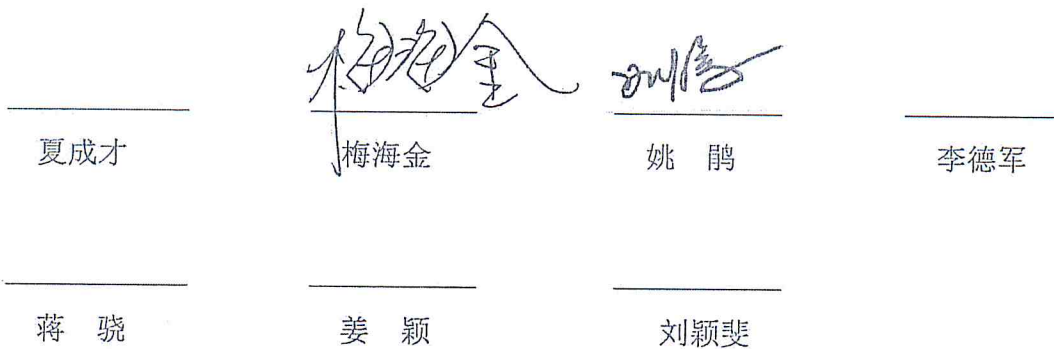 梅海金
夏成才 梅海金 姚 鹃 李德军
蒋 骁 姜 颖 刘颖斐